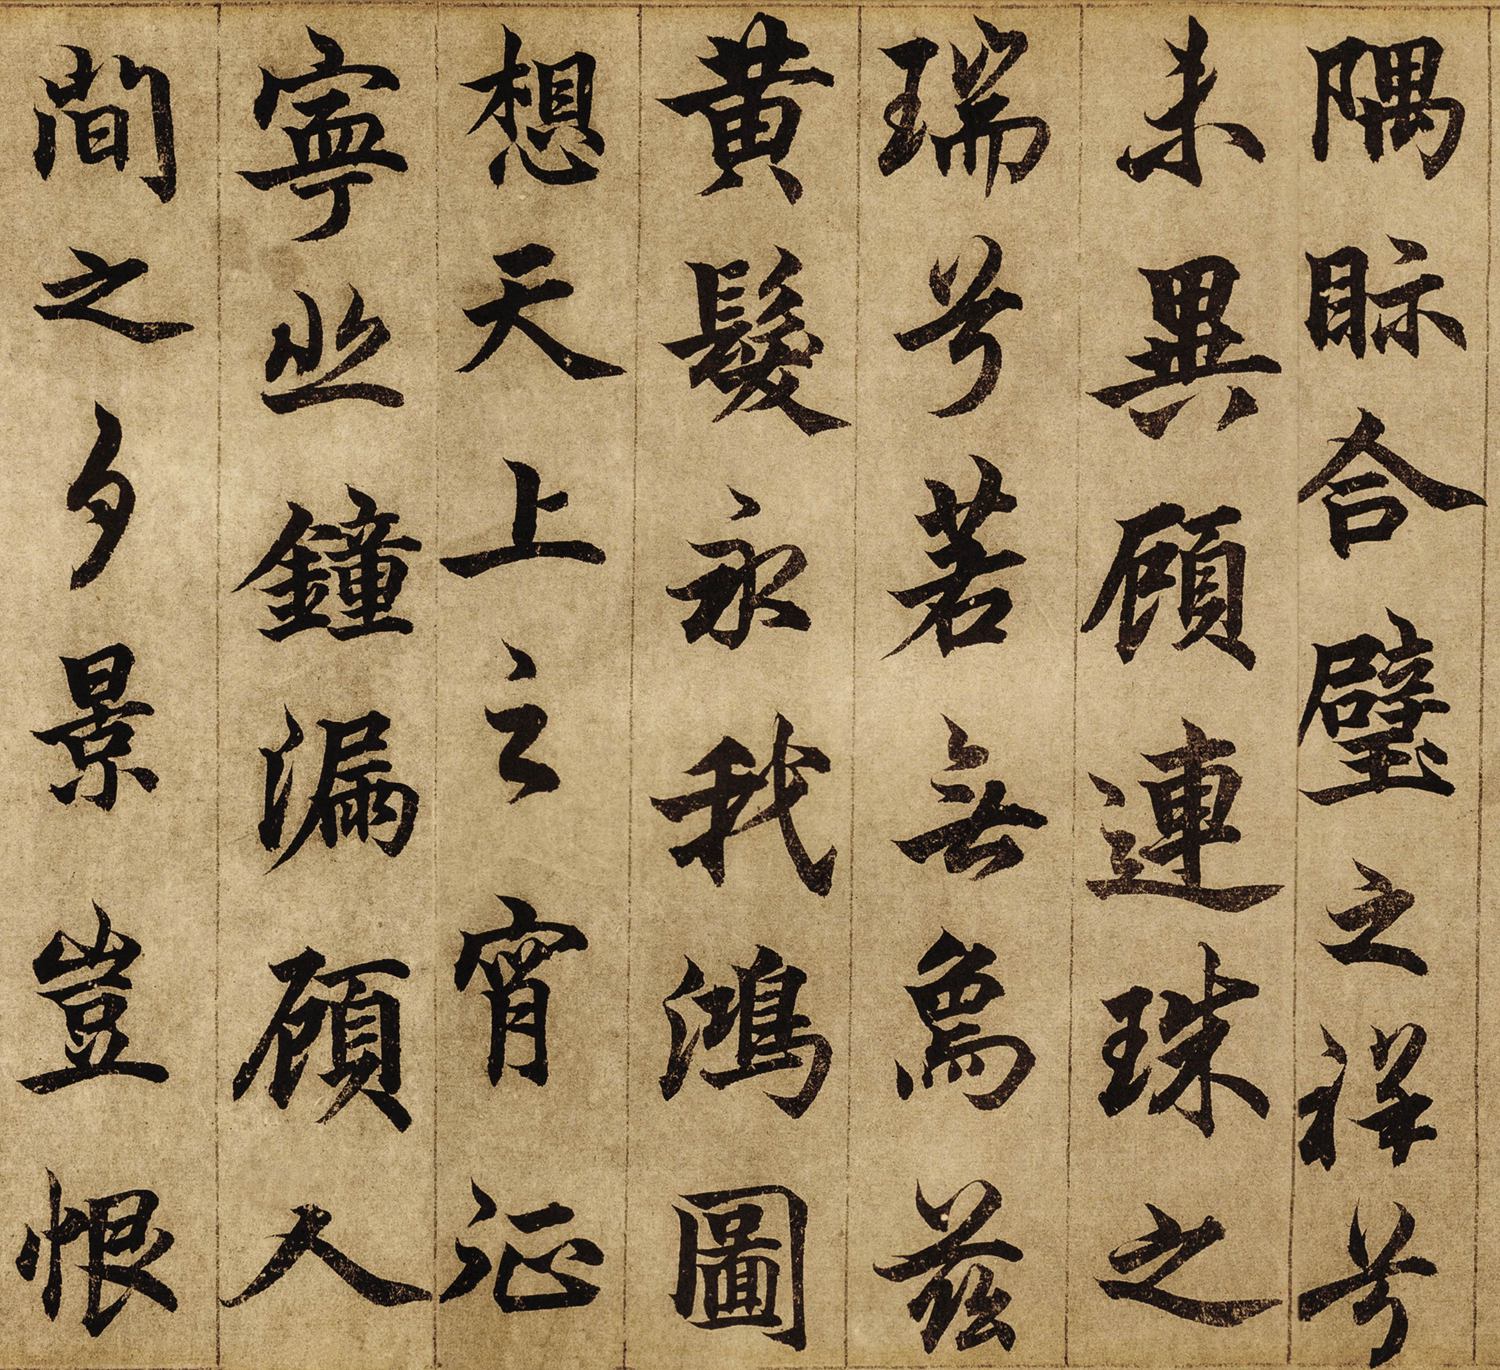 隅眎合璧之祥兮
未異顧連珠之
瑞兮若無為茲
黄髮永我鴻圖
想天上之宵征
寧鐘漏顧人
間之夕景豈恨